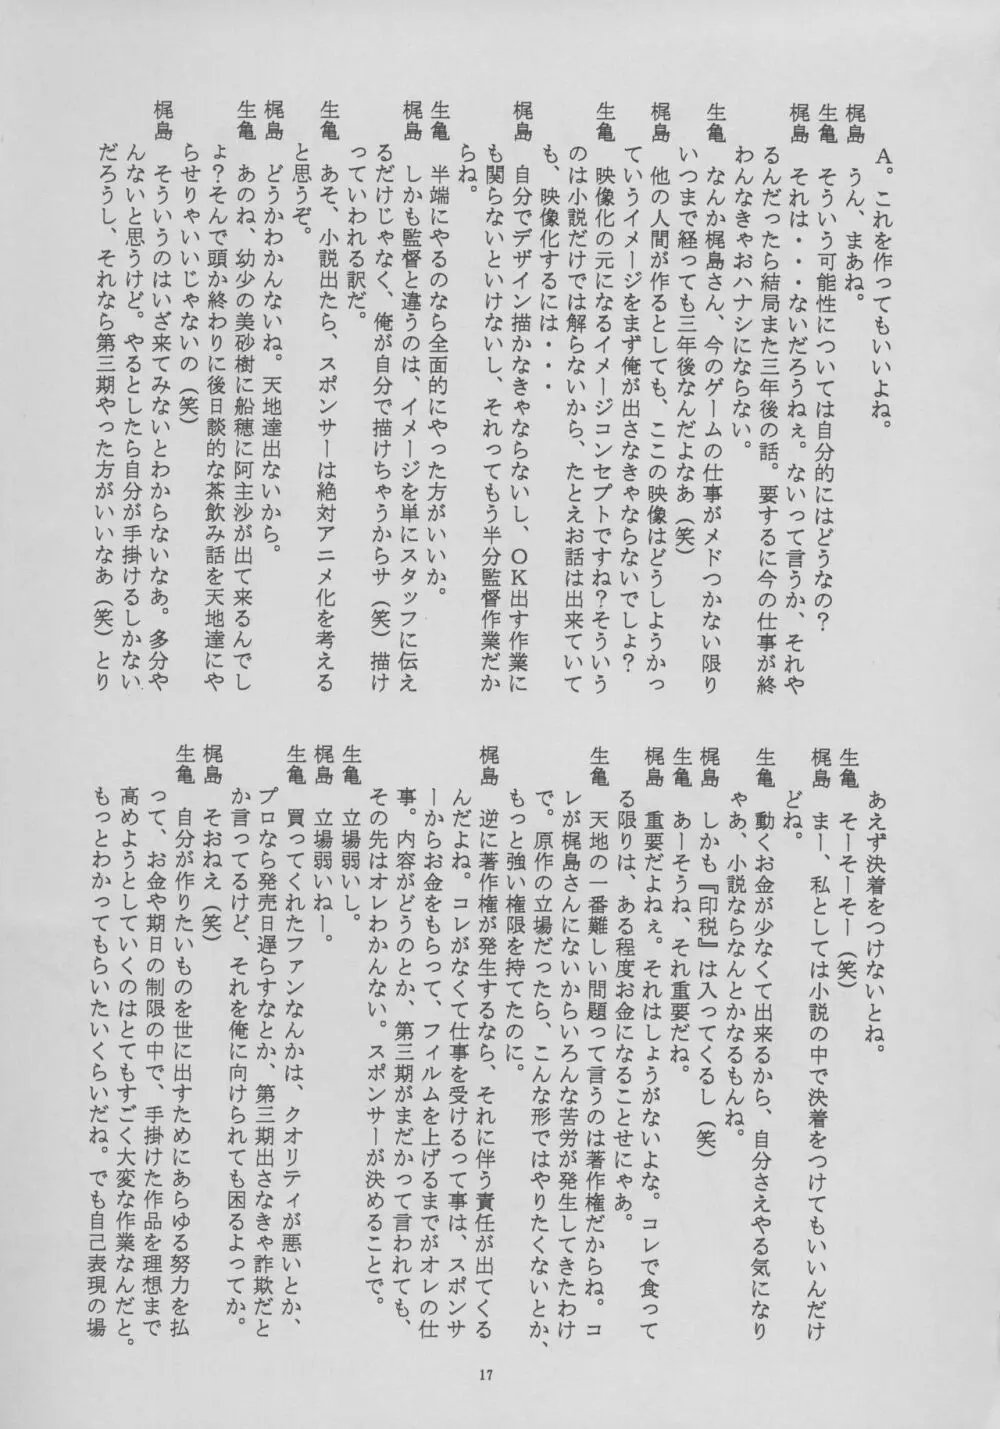 A。これを作ってもいいよね。
梶島　うん、まあね。
生亀　そういう可能性については自分的にはどうなの？
梶島　それは・・・ないだろうねぇ。ないって言うか、それや
るんだったら結局また三年後の話。要するに今の仕事が終
わんなきゃおハナシにならない。
生亀　なんか梶島さん、今のゲームの仕事がメドつかない限り
いつまで経っても三年後なんだよなあ（笑）
梶島　他の人間が作るとしても、ここの映像はどうしようかっ
ていうイメージをまず俺が出さなきゃならないでしょ？
生亀　映像化の元になるイメージコンセプトですね？そういう
のは小説だけでは解らないから、たとえお話は出来ていて
も、映像化するには・・・
梶島　自分でデザイン描かなきゃならないし、OK出す作業に
も関らないといけないし、それってもう半分監督作業だか
らね。
生亀　半端にやるのなら全面的にやった方がいいか。
梶島　しかも監督と違うのは、イメージを単にスタッフに伝え
るだけじゃなく、俺が自分で描けちゃうからサ（笑）描け
っていわれる訳だ。
生亀　あそ、小説出たら、スポンサーは絶対アニメ化を考える
と思うぞ。
梶島　どうかわかんないね。天地達出ないから。
生亀　あのね、幼少の美砂樹に船穂に阿主沙が出て来るんでし
ょ？そんで頭か終わりに後日談的な茶飲み話を天地達にや
らせりゃいいじゃないの（笑）
梶島　そういうのはいざ来てみないとわからないなあ。多分や
んないと思うけど。やるとしたら自分が手掛けるしかない
だろうし、それなら第三期やった方がいいなあ（笑）とり
あえず決着をつけないとね。
生亀　そーそーそー（笑）
梶島　まー、私としては小説の中で決着をつけてもいいんだけ
どね。
生亀　動くお金が少なくて出来るから、自分さえやる気になり
ゃあ、小説ならなんとかなるもんね。
梶島　しかも『印税』は入ってくるし（笑）
生亀　あーそうね、それ重要だね。
梶島　重要だよねぇ。それはしょうがないよな。コレで食って
る限りは、ある程度お金になることせにゃあ。
生亀　天地の一番難しい問題って言うのは著作権だからね。コ
レが梶島さんにないからいろんな苦労が発生してきたわけ
で。原作の立場だったら、こんな形ではやりたくないとか、
もっと強い権限を持てたのに。
梶島　逆に著作権が発生するなら、それに伴う責任が出てくる
んだよね。コレがなくて仕事を受けるって事は、スポンサ
ーからお金をもらって、フィルムを上げるまでがオレの仕
事。内容がどうのとか、第三期がまだかって言われても、
その先はオレわかんない。スポンサーが決めることで。
生亀　立場弱いし。
梶島　立場弱いねー。
生亀　買ってくれたファンなんかは、クオリティが悪いとか、
プロなら発売日遅らすなとか、第三期出さなきゃ詐欺だと
か言ってるけど、それを俺に向けられても困るよってか。
梶島　そおねえ（笑）
生亀　自分が作りたいものを世に出すためにあらゆる努力を払
って、お金や期日の制限の中で、手掛けた作品を理想まで
高めようとしていくのはとてもすごく大変な作業なんだと。
もっとわかってもらいたいくらいだね。でも自己表現の場
17